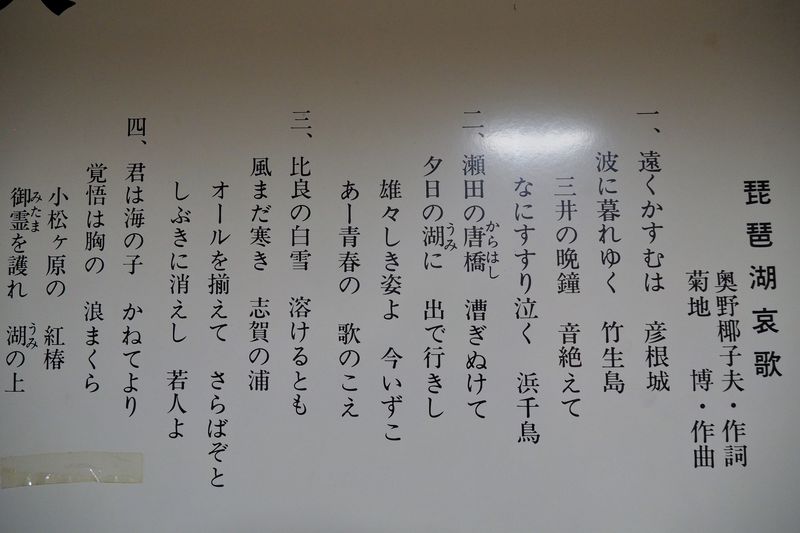 琵琶湖哀歌
奥野椰子夫・作詞
菊地　博・作曲
一、遠くかすむは　彦根城
波に暮れゆく　竹生島
三井の晩鐘　音絶えて
なにすすり泣く　浜千鳥
二、瀬田の唐橋　漕ぎぬけて
からはし
夕日の湖に　出で行きし
うみ
雄々しき姿よ　今いずこ
あー青春の　歌のこえ
三、比良の白雪　溶けるとも
風まだ寒き　志賀の浦
オールを揃えて　さらばぞと
しぶきに消えし　若人よ
四、君は海の子　かねてより
覚悟は胸の　浪まくら
小松ヶ原の　紅椿
御霊を護れ　湖の上
みたま
うみ